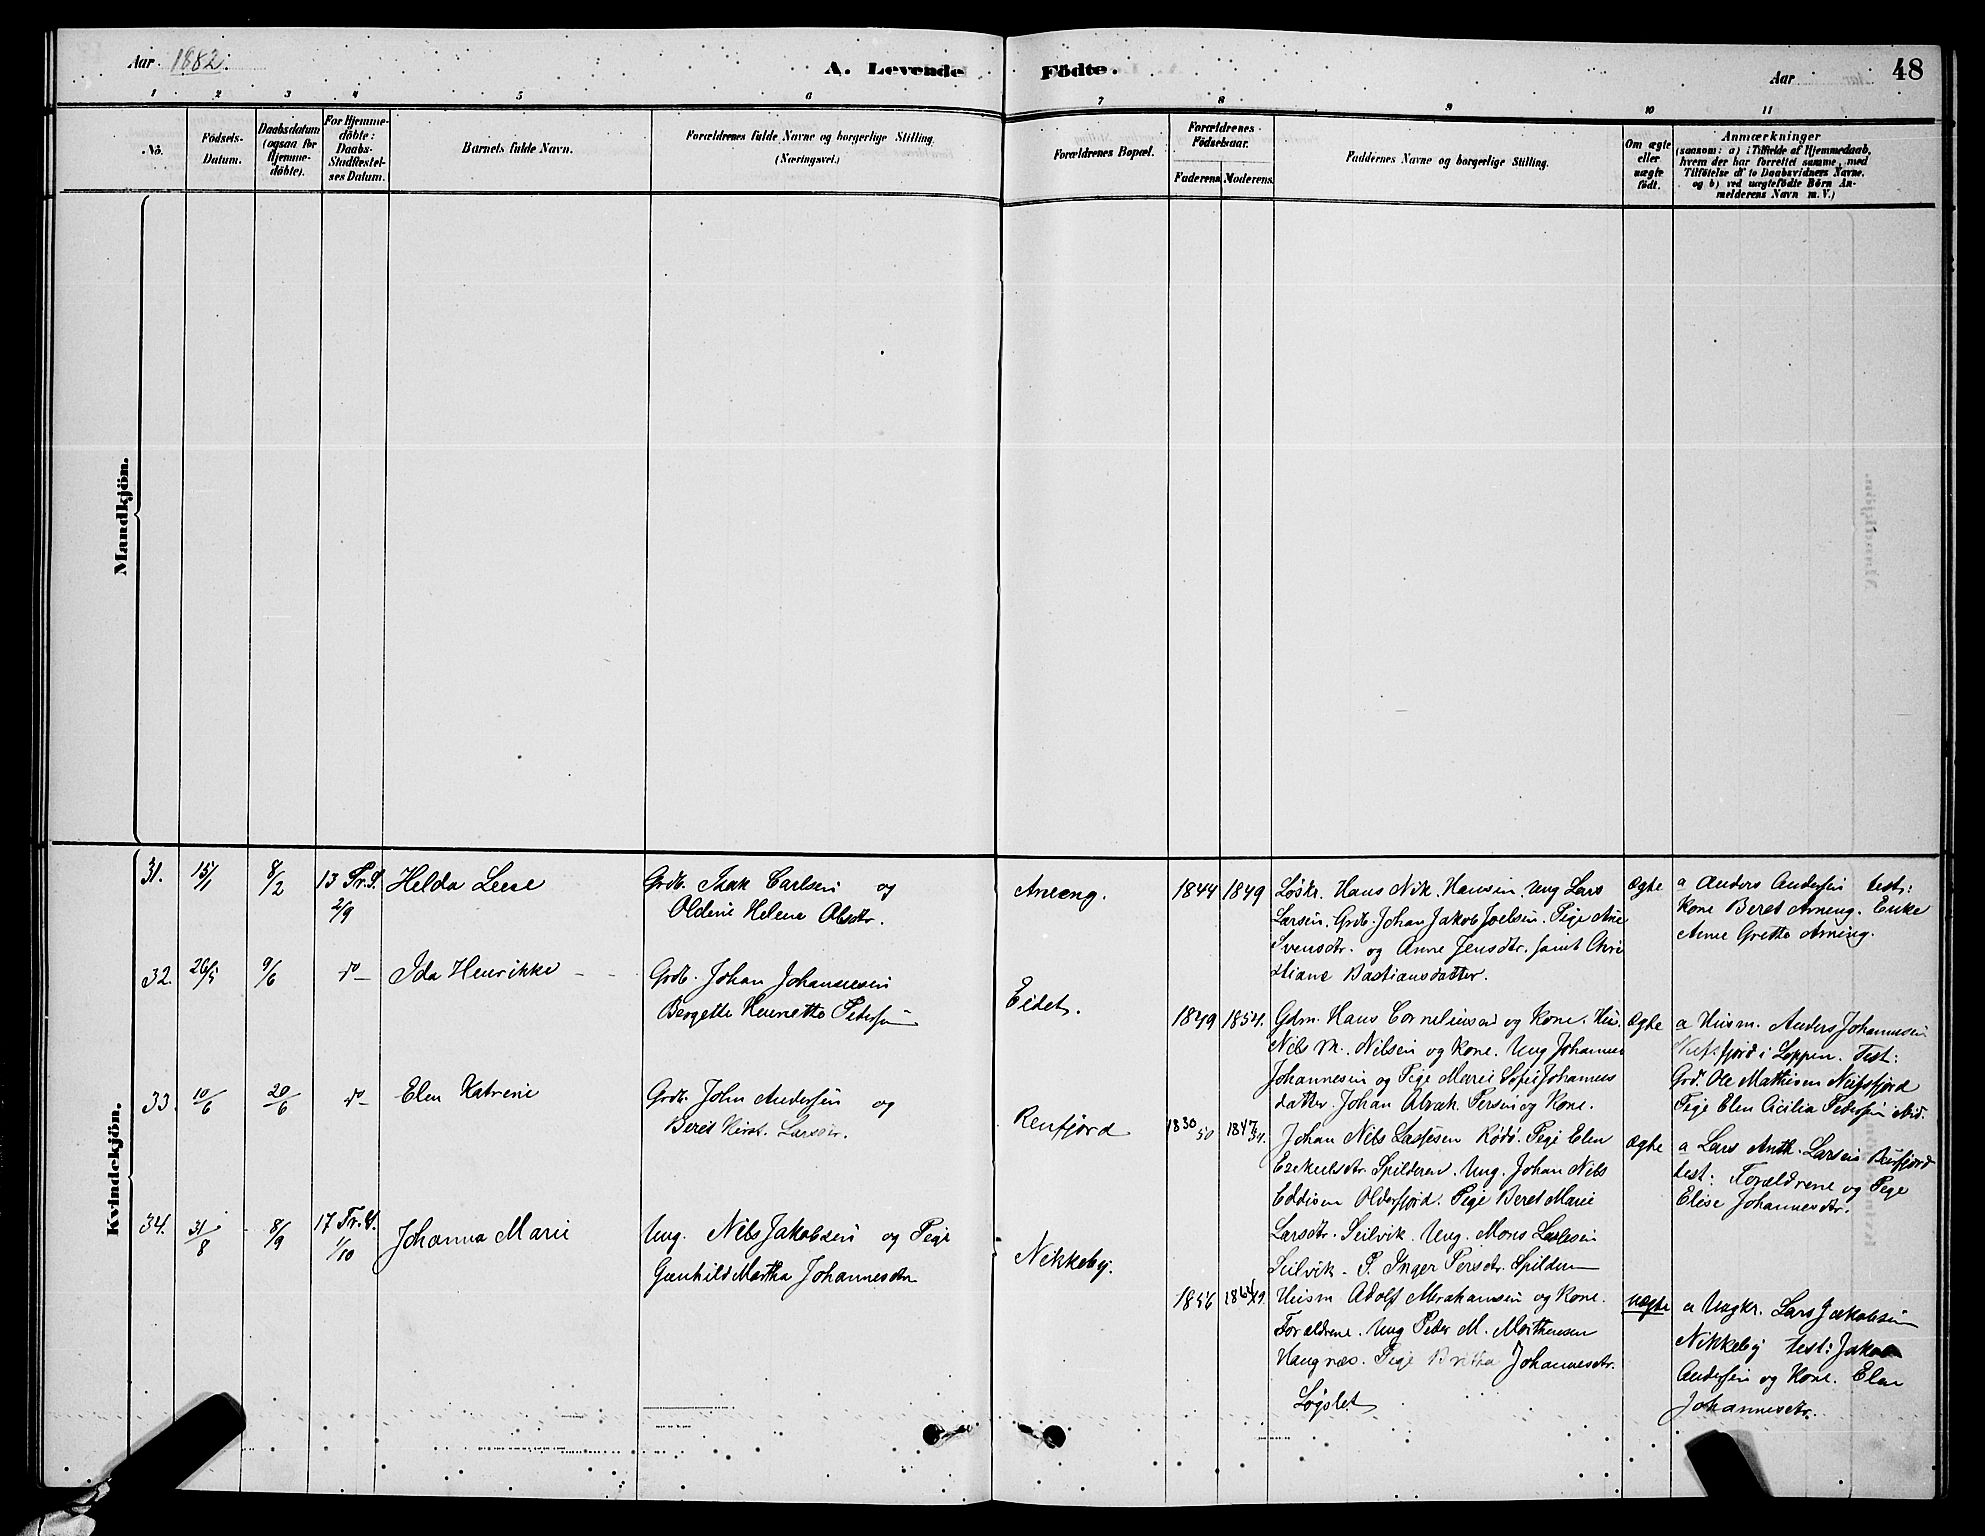 Aar 1882.
A. Levende Födte.
Aar
48
1 2 3 4 5 6 7 8 9 10 11
No.
Födsels-Datum.
Daabsdatum (ogsaa for Hjemme-döbte).
For Hjemme-döbte: Daabs-Stadfæstel-ses Datum.
Barnets fulde Navn.
Forældrenes fulde Navne og borgerlige Stilling
(Næringsvei.)
Forældrenes Bopæl.
Forældrenes Födselsaar.
Faderens Moderens.
Faddernes Navne og borgerlige Stilling.
Om ægte eller uægte födt.
Anmærkninger
(saasom: a) i Tilfælde af Hjemmedaab,
hvem der har forrettet samme, med
Tilföielse af to Daabsvidners Navne,
og b) ved uægtefödte Börn An-
melderens Navn m. V.)
Mandkjön.
Kvindekjön.
31. 15/1 8/2 13 Tr.S. 2/9
Helda Leese
Grdb. Isak Carlsen og
Oldine Helene Olsdtr.
Arneng.
1844 1849
Løskr. Hans Nik. Hansen. Ung Lars
Larsen. Grdb. Johan Jakob Joelsen. Pige Ane
Svensdtr. og Anne Jensdtr. samt Chri
stiane Bastiansdatter.
Ægte
a Anders Andersen test:
Kone Beret Arneng. Enke
Anne Grethe Arneng.
32. 26/5 9/6 do
Ida Henrikke
Grdb. Johan Johannesen
Bergette Henrette Pedersen
Eidet.
1849 1854.
Gdm. Hans Corneliusen og Kone. Hus.
Nils M. Nilsen og Kone. Ung Johannes
Johannesen og Pige Marie Sofie Johannes
datter. Johan Abrah. Persen og Kone.
Ægte
a Husm. Anders Johannesen
fjord i Loppen. Test:
Grd. Ole Mathisen
Pige Elen Cicilia Pedersen
33. 10/6 20/6 do
Elen Katrine
Grdb. John Andersen og
Beret Kirst. Larsdtr.
Reinfjord
1830/50 1847/34.
Johan Nils Lassesen Rødø. Pige Elen
Ezekielsdtr. Spilderen. Ung. Johan Nils
Eddisen Olderfjord. Pige Beret Marie
Larsdtr. Seilvik. Ung. Mons Lassesen
Seilvik. P. Inger Persdtr. Spildern
Ægte
a Lars Anth. Larsen
test: Forældrene og Pige
Elise Johannesdtr.
34. 31/8 8/9 17 Tr.S. 1/10
Johanna Marie
Ung. Nils Jakobsen og Pige
Gunhild Martha Johannesdtr
Nikkeby.
1856
Husm Adolf Abrahamsen og Kone.
Forældrene. Ung Peder M. Morthensen
Haugnæs. Pige Britha Johannesdtr.
Løgslet
uægte
a Ungkr. Lars Jakobsen
Nikkeby test: Jakob
Andersen og Kone. Elen
Johannesdtr.